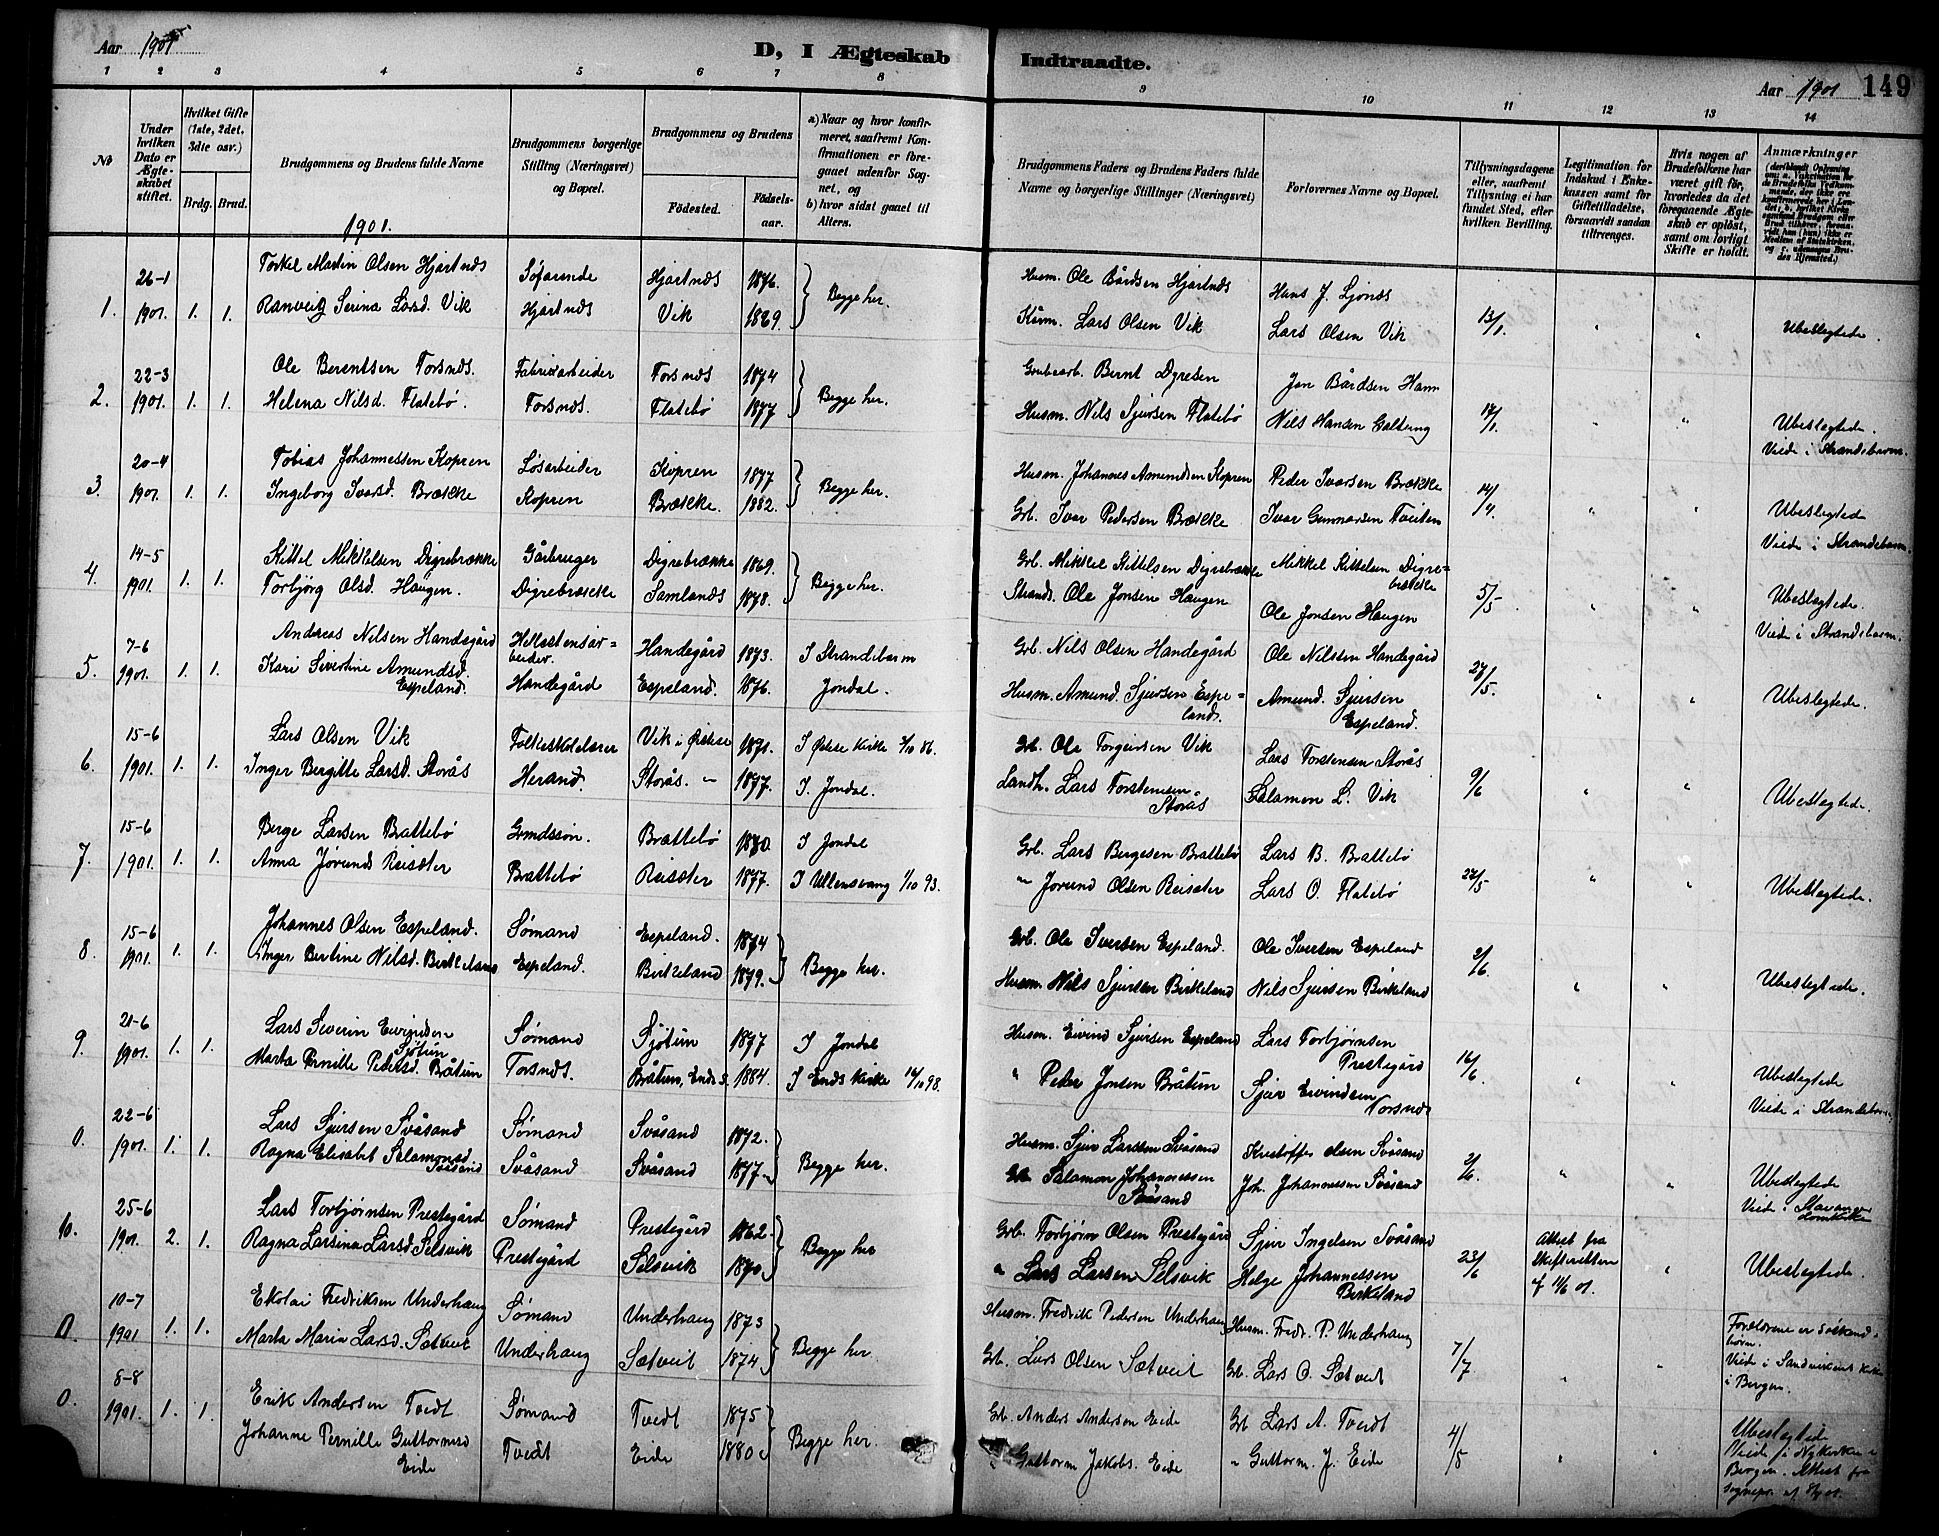 Aar 1901
D, I Ægteskab Indtraadte.
Aar 1901 149
1 2 3 4 5 6 7 8 9 10 11 12 13 14
No
Under hvilken Dato er Ægteskabet stiftet.
Hvilket Gifte (1ste, 2det, 3dte osv.)
Brdg. Brud.
Brudgommens og Brudens fulde Navne
Brudgommens borgerlige Stilling (Næringsvei) og Bopæl.
Brudgommens og Brudens
Fødested. Fødselsaar.
a) Naar og hvor konfirmeret, saafremt Konfirmationen er foregaaet udenfor Sognet, og
b) hvor sidst gaaet til Alters.
Brudgommens Faders og Brudens Faders fulde Navne og borgerlige Stillinger (Næringsvei)
Forlovernes Navne og Bopæl.
Tillysningsdagene eller, saafremt Tillysning ei har fundet Sted, efter hvilken Bevilling.
Legitimation for Indskud i Enkekassen samt for Giftetilladelse, forsaavidt saadan tiltrænges.
Hvis nogen af Brudefolkene har været gift før, hvorledes da det foregaaende Ægteskab er opløst, samt om lovligt Skifte er holdt.
Anmærkninger
1901.
26-1 Torkel Martin Olsen Hjartnes Søfarende Hjartnes 1876. Husm. Ole Bårdsen Hjartnes Hans J. Ljønes
1. 1901. 1. 1. Ranveig Serina Larsd. Vik Hjartnes Vik 1869. Begge her. Kårm. Lars Olsen Vik Lars Olsen Vik 13/1. " " Ubeslegtede.
22-3 Ole Berentsen Torsnes. Fabrikarbeider Torsnes 1874 Grubearb. Bernt Dyresen Jon Bårdsen Hamn
2. 1901. 1. 1. Helena Nilsd. Flatebø. Torsnes. Flatebø 1877 Begge her. Husm. Nils Sjursen Flatebø Nils Hansen Galtung 17/1. " " Ubeslegtede.
Viede i Strandebarm.
20-4 Tobias Johannessen Kopren Løsarbeider Kopren 1877 Husm. Johannes Amundsen Kopren Peder Ivarsen Brække
3. 1901. 1. 1. Ingeborg Ivarsd. Brække Kopren Brække. 1882. Begge her. Grb. Ivar Pedersen Brække Ivar Gunnarsen Tveiten 14/4. " " Ubeslegtede
Viede i Strandebarm.
14-5 Kittel Mikkelsen Digrebrække Gårbruger Digrebrække 1869. Grb. Mikkel Kittelsen Digrebrække Mikkel Kittelsen Digrebrække
4. 1901. 1. 1. Torbjørg Olsd. Haugen. Digrebrække Samlands 1878. Begge her. Strands. Ole Jonsen Haugen Ole Jonsen Haugen 5/5 " " Ubeslegtede.
Viede i Strandebarm.
7-6 Andreas Nilsen Handegård Hellestensarbeider. Handegård 1873. I Strandebarm Grb. Nils Olsen Handegård Ole Nilssen Handegård
5. 1901. 1. 1. Kari Sivertine Amundsd. Espeland. Handegård Espeland. 1876. Jondal. Husm. Amund Sjursen Espeland. Amund Sjursen Espeland. 27/5. " " Ubeslegtede.
15-6 Lars Olsen Vik Folkeskolelærer Vik i Østese 1871. I Østese Kirke 3/10 86. Grb. Ole Torgeirsen Vik Lars Torstensen Storås
6. 1901. 1. 1. Inger Bergitte Larsd. Storås Herand. Storås. " 1877. I Jondal. Landh. Lars Torstensen Storås Salamon L. Vik 9/6 " " Ubeslegtede.
15-6 Berge Larsen Brattebø Grundssøn. Brattebø 1870. I Jondal Grb. Lars Bergesen Brattebø Lars B. Brattebø
7. 1901. 1. 1. Anna Jørunds Reisæter Brattebø Reisæter 1877. I Ullensvang 1/10 93. " Jorund Olsen Reisæter Lars O. Flatebø 27/5 " " Ubeslegtede.
15-6 Johannes Olsen Espeland. Sømand Espeland. 1874 Grb. Ole Iversen Espeland. Ole Iversen Espeland
8. 1901. 1. 1. Inger Bertine Nilsd. Birkeland Espeland. Birkeland 1879. Begge her. Husm. Nils Sjursen Birkeland Nils Sjursen Birkeland 2/6. " " Ubeslegtede.
21-6 Lars Severin Eivindsen Sjøtun Sømand Sjøtun 1877 I Jondal Husm. Eivind Sjursen Espeland Lars Torbjørnsen Prestegård
9. 1901. 1. 1. Marta Pernille Pedersd. Båtun Torsnes. Båtun, Enæs. 1884. I Enæs Kirke 16/10 98. " Peder Jonsen Båtun Sjur Eivindsen Torsnes 16/6. " " Ubeslegtede
Viede i Strandebarm.
22-6 Lars Sjursen Svåsand Sømand Svåsand 1872. Husm. Sjur Larssen Svåsand Kristoffer Olsen Svåsand
0. 1901. 1. 1. Ragna Elisabet Salamonsd. Svåsand Svåsand Svåsand 1877. Begge her. Grb. Salamon Johannessen Svåsand Joh. Johannessen Svåsand 2/6. " " Ubeslegtede
Viede i Stavanger Domkirke
25-6 Lars Torbjørnsen Prestegård Sømand Prestegård 1862. Grb. Torbjørn Olsen Prestegård Sjur Ingelsen Svåsand Attest fra
1901. 2. 1. Ragna Larsina Larsd. Selsvik Prestegård Selsvik 1870 Begge her " Lars Larsen Selsvik Helge Johannessen Birkeland 23/6 Skifteretten af 11/6 01. " Ubeslegtede.
10-7 Ekolai Fredriksen Underhaug Sømand Underhaug 1873 Husm. Fredrik Pedersen Underhaug Husm. Fredr. P. Underhaug
0. 1901 1. 1. Marta Maria Larsd. Sætveit Underhaug Sætveit 1874 Begge her. Grb. Lars Olsen Sætveit Grb. Lars O. Sætveit 7/7 " " Forældrene er Søskendebørn.
Viede i Sandvikens Kirke i Bergen.
8-8 Erik Andersen Tvedt Sømand Tvedt 1875 Grb. Anders Andersen Eide Grb. Lars A. Tveidt
0. 1901. 1. 1. Johanne Pernille Guttormsd. Eide Tvedt Eide 1880 Begge her. " Guttorm Jakobs. Eide " Guttorm J. Eide 4/5 " " Ubeslegtede
Viede i Nykirken i Bergen. Attest fra